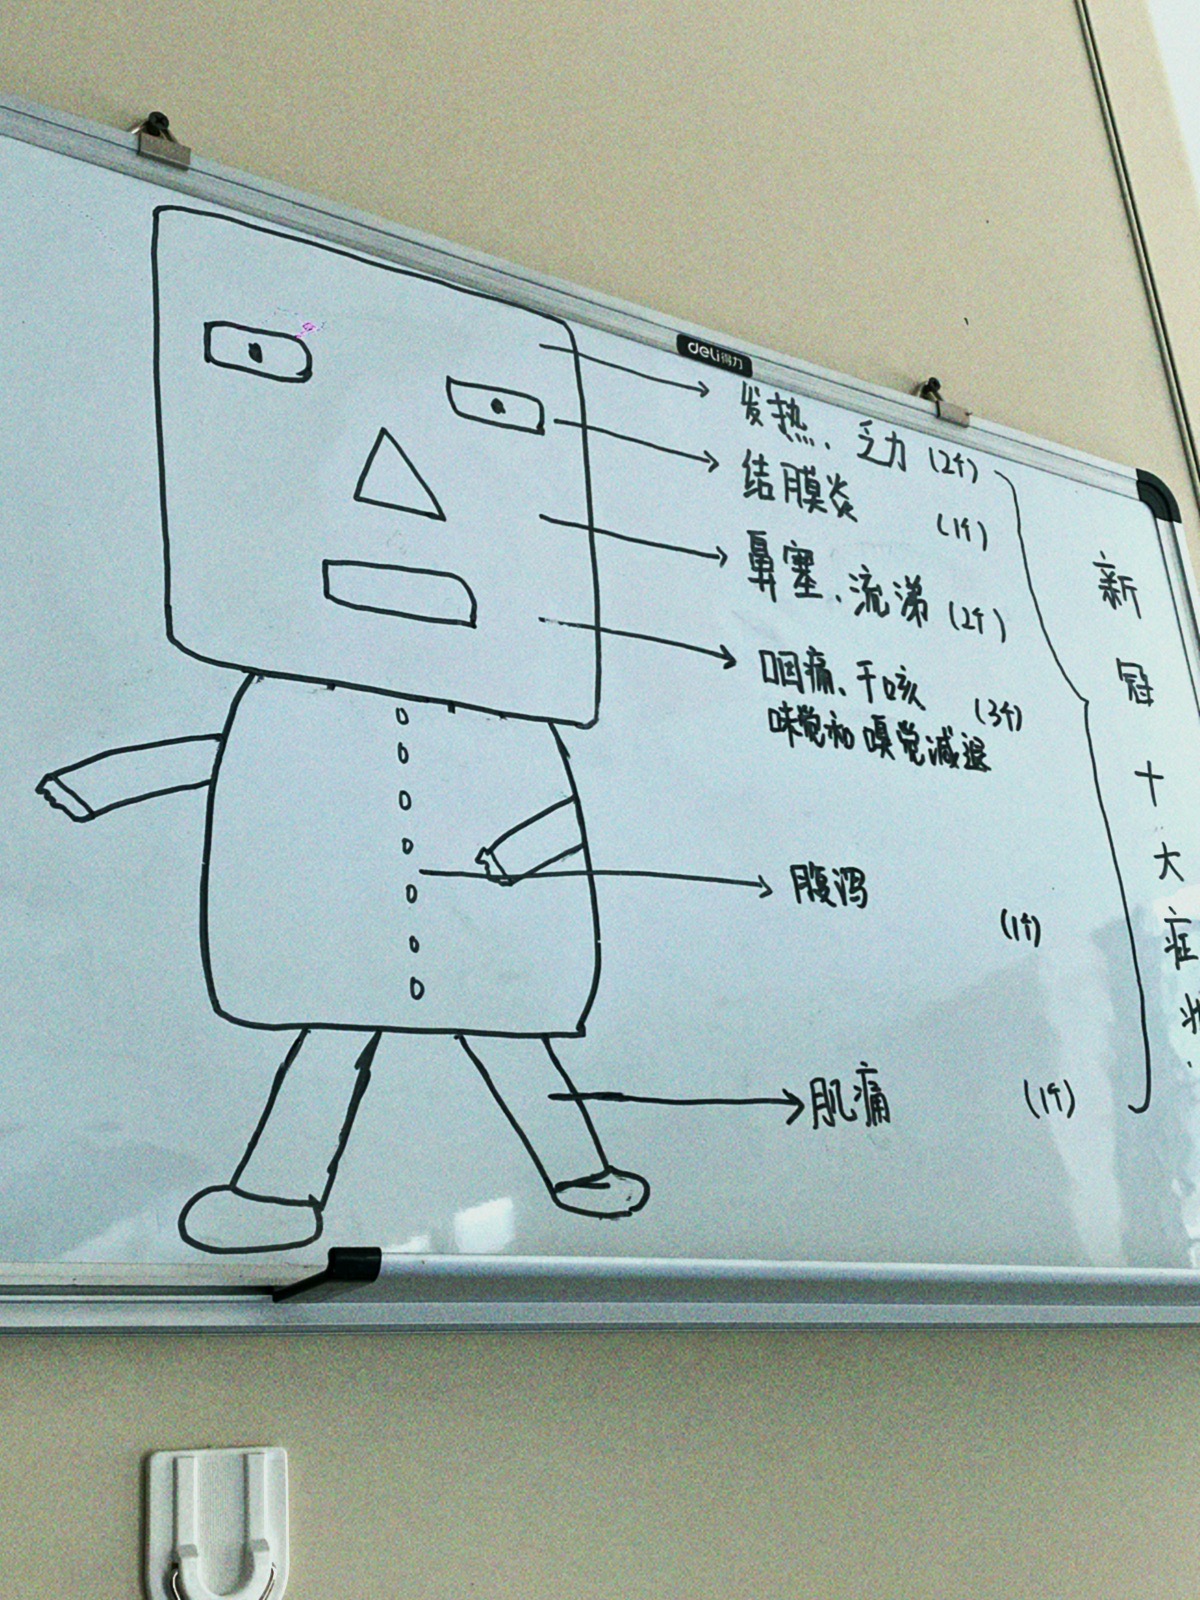 deli得力
发热、乏力 (2个)
结膜炎 (1个)
鼻塞、流涕 (2个)
咽痛、干咳 (3个)
味觉和嗅觉减退
腹泻 (1个)
肌痛 (1个)
新冠十大症状